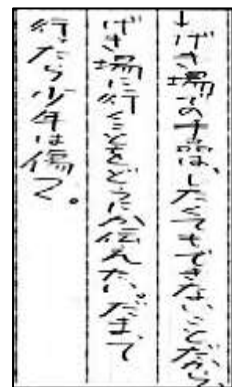 げき場での十品は、したくてもできないことだから、
げき場に行くことをどうにか伝えたい。だまって
行ったら少年は傷つく。